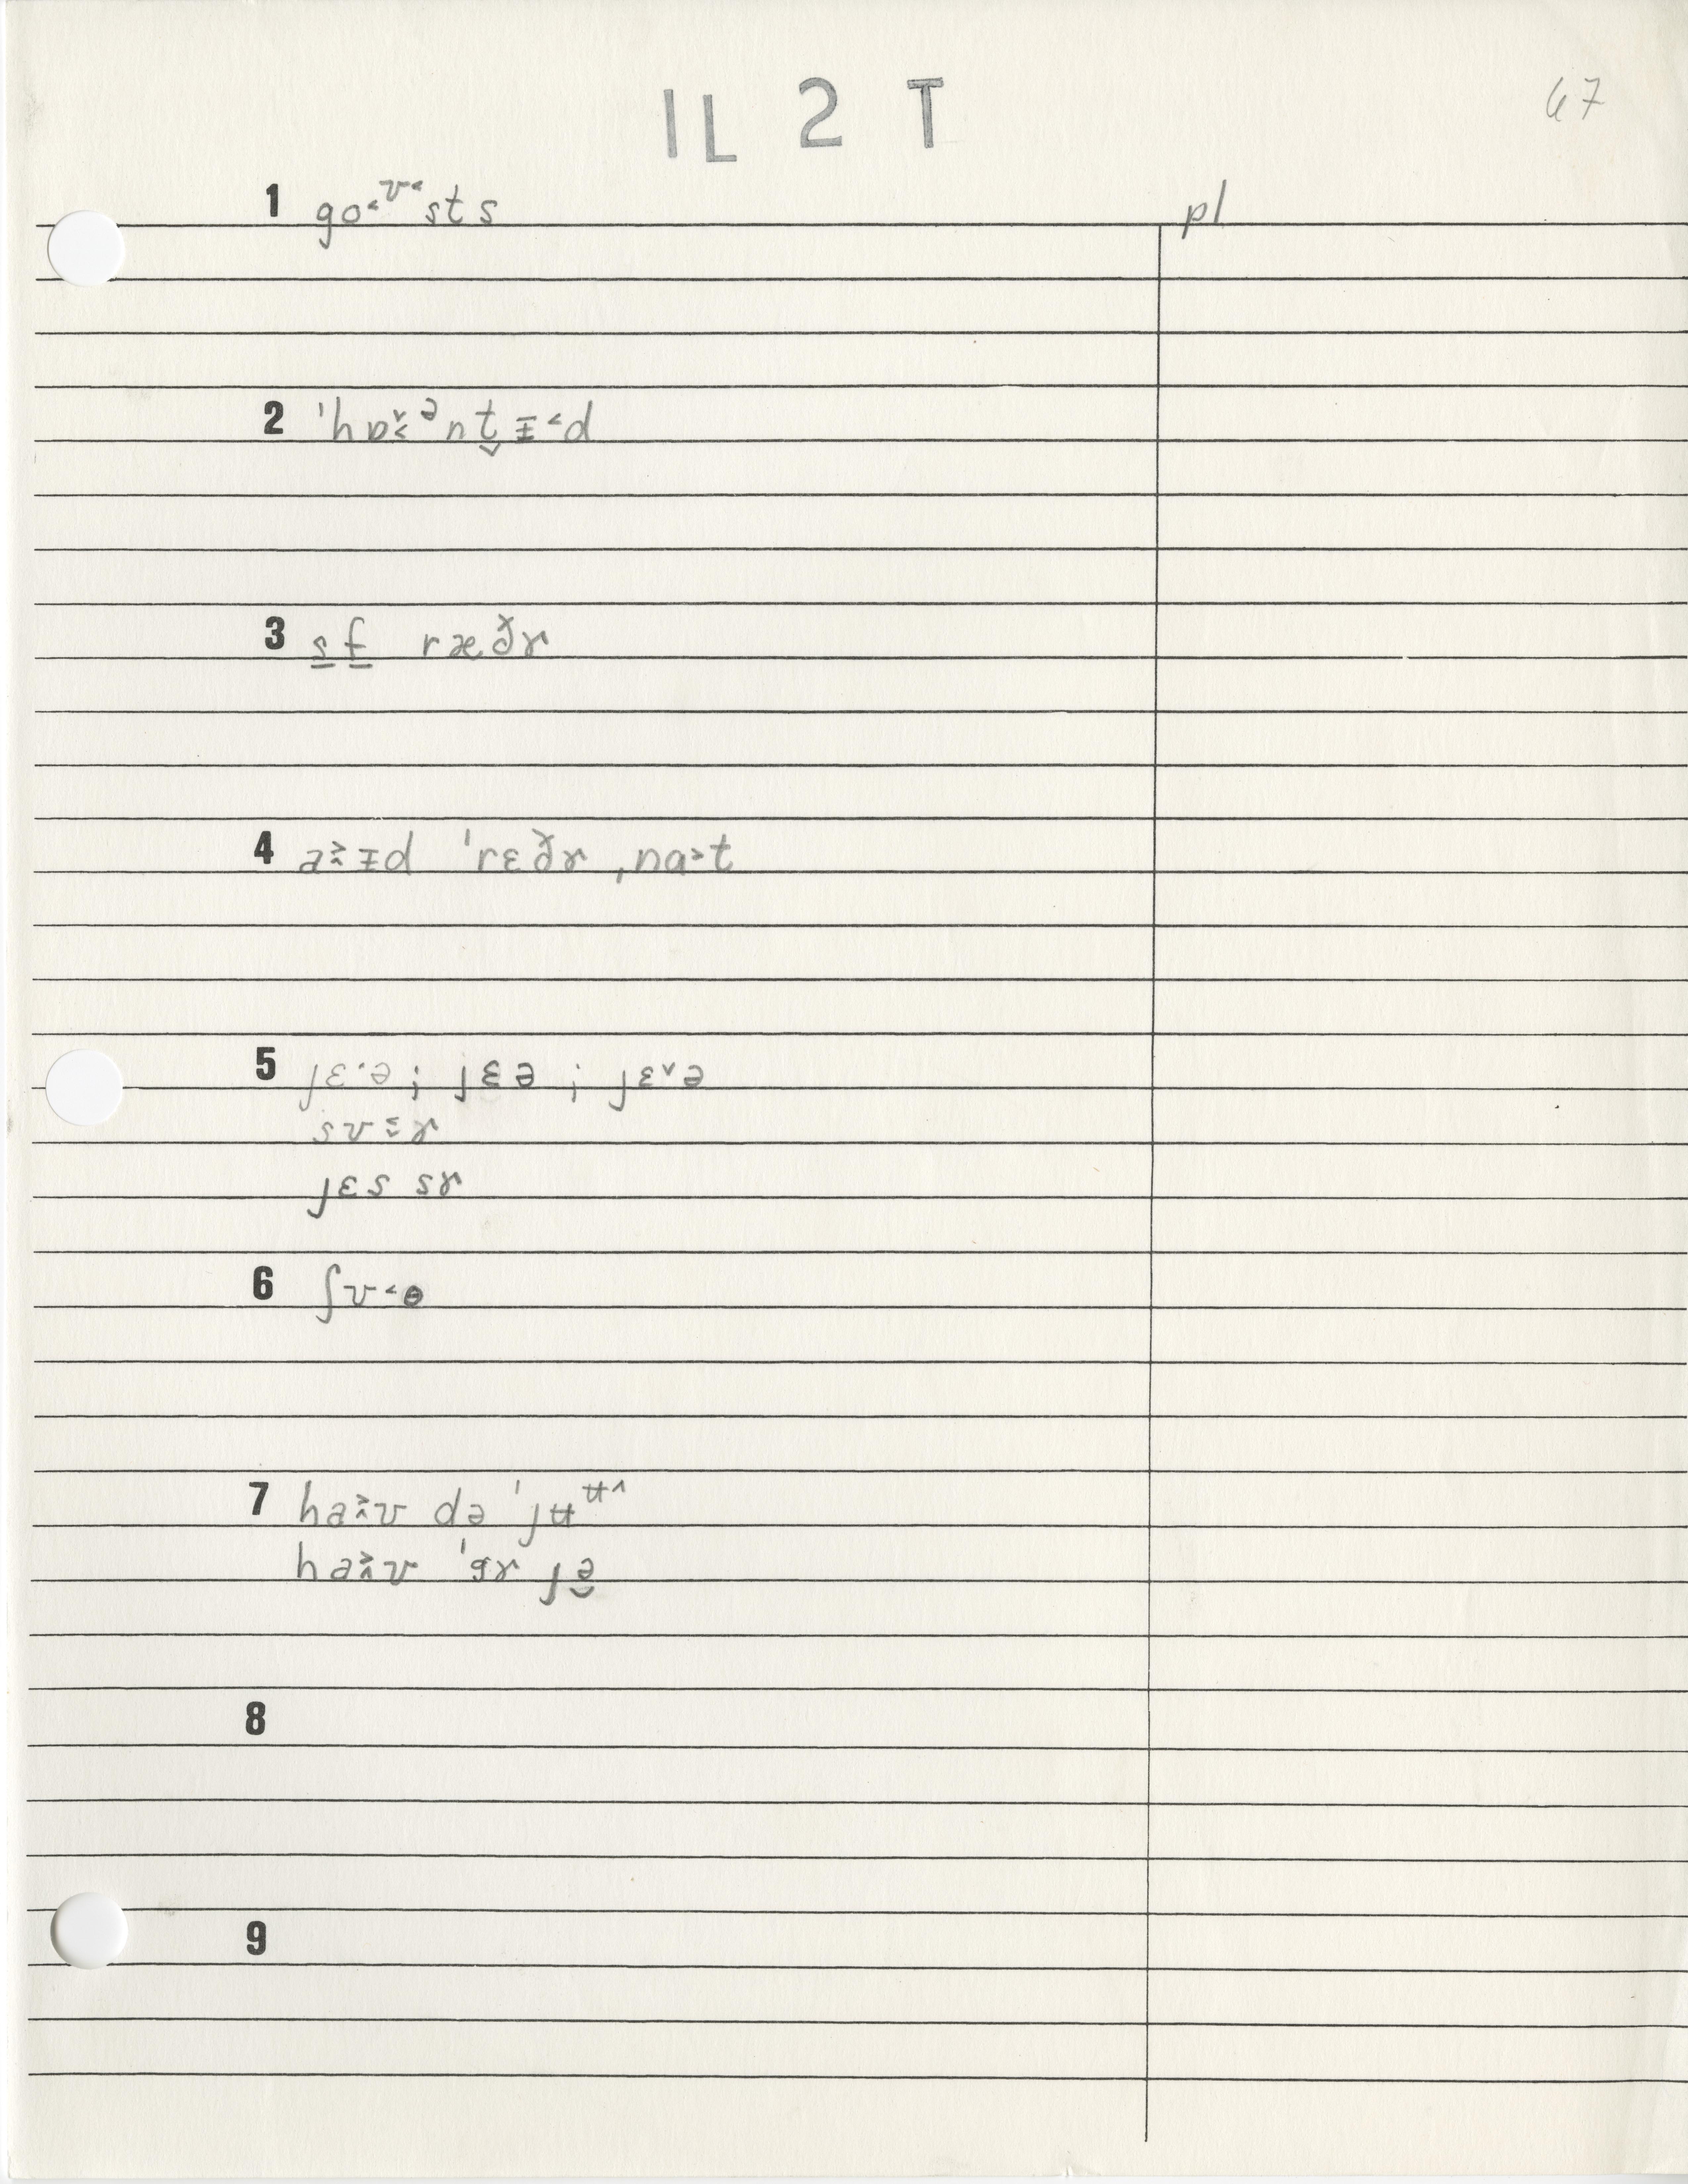 IL 2 T
67
1 go˂ᶷ˂sts pl
2 ˈhɒ̌˂ᵊnt̬ᵻ˂d
3 s̲f̲ ræð̌ɚ
4 a˃˄ᵻd ˈrɛð̌ɚ ˌna˃t
5 jɛ·ə ; jɛə ; jɛ˅ə
jɛs sɚ
6 ʃʊ˂ɵ
7 ha˃˄ʊ də ˈjʉᶶ˄
ha˃˄ʊ ˈgɚ jə̯
8
9